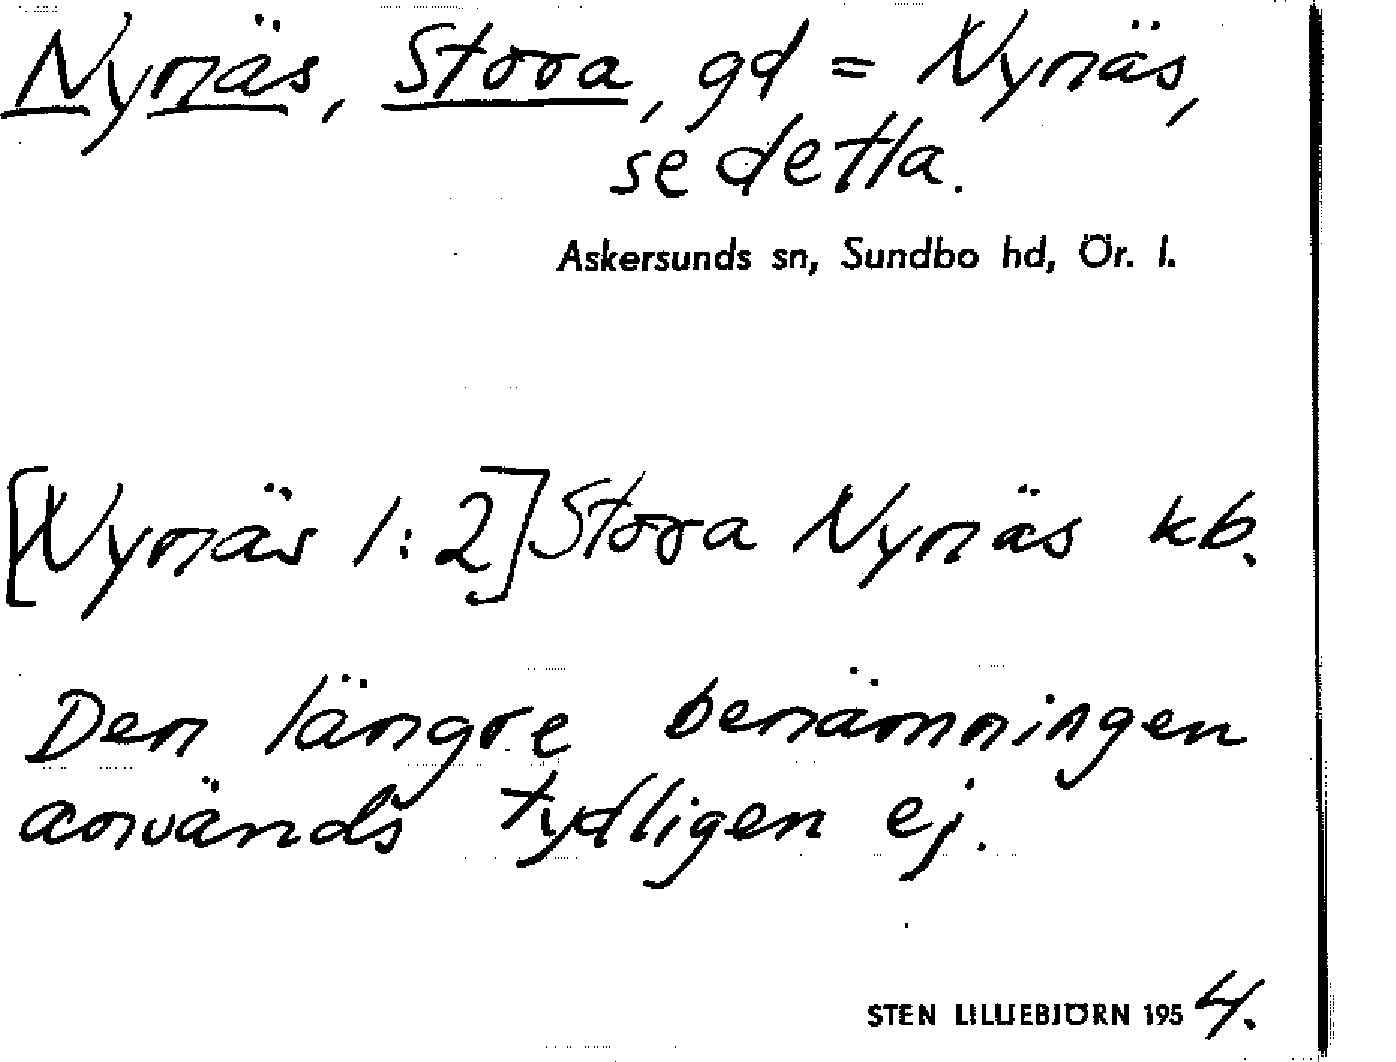 Nynäs, Stora, gd = Nynäs,
se detta.
Askersunds sn, Sundbo hd, Ör. l.
[Nynäs 1:2] Stora Nynäs kb.
Den längre benämningen
används tydligen ej.
STEN LILLIEBJÖRN 1954.